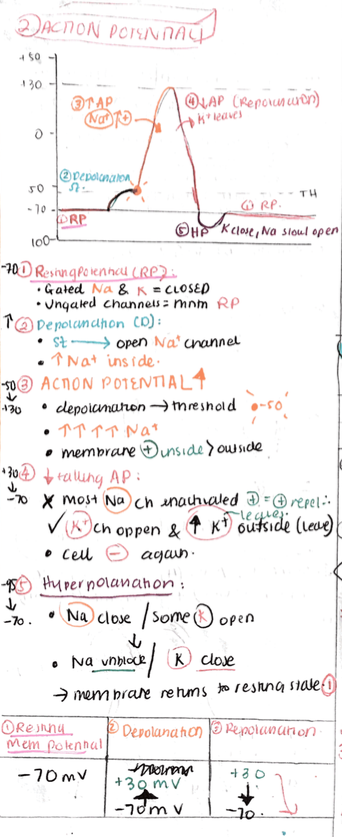 ② ACTION POTENTIAL
+50
+30
③ ↑ AP
Na⁺ ↑ +
④ ↓ AP (Repolarization)
K⁺ leaves
0
② Depolarization
St.
50
TH
-70
① RP
① RP.
⑤ HP
K close, Na slowl open
100
-70 ① Resting Potential (RP):
• Gated Na & K = CLOSED
• Ungated channels = mntn RP
↑ ② Depolarization (D):
• St → open Na⁺ channel
• ↑ Na⁺ inside.
-50 ↓ +30 ③ ACTION POTENTIAL ↑
• depolarization → threshold -50
• ↑↑↑↑ Na⁺
• membrane ⊕ inside > outside
+30 ↓ -70 ④ ↓ falling AP:
✗ most Na ch inactivated ⊕ = ⊕ repel ∴
leaves
✓ K⁺ ch oppen & ↑ K⁺ outside (leave)
• cell ⊖ again.
-95 ↓ -70. ⑤ Hyperpolarization:
• Na close / some K open
↓
• Na unblock / K close
→ membrane returns to resting state ①
① Resting Mem Potential
② Depolarization
③ Repolarization
-70 mV
+30 mV
-70 mV
+30
↓
-70.